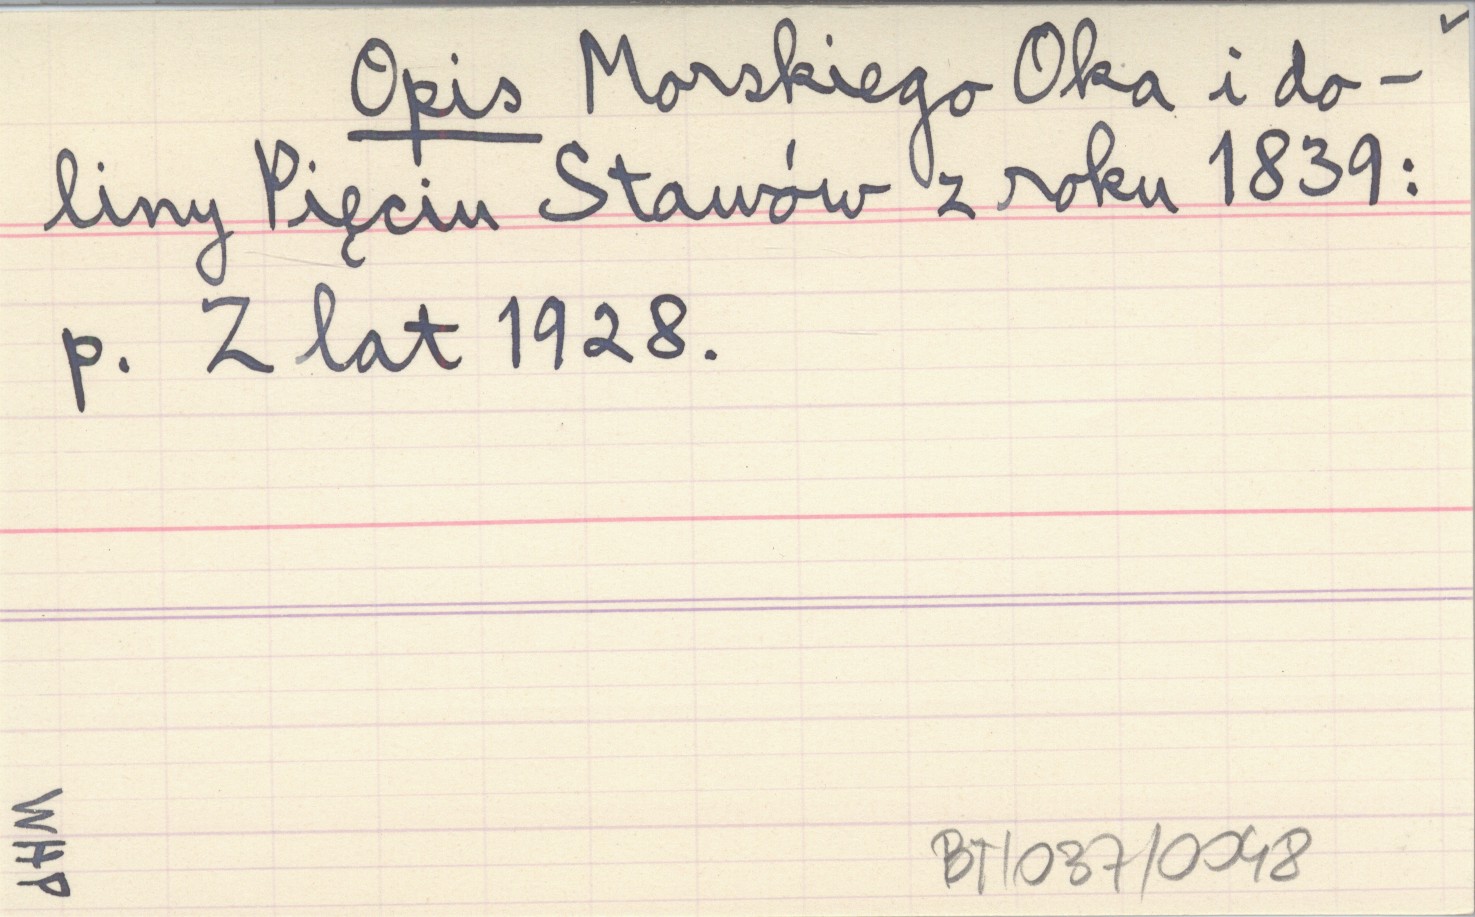 Opis Morskiego Oka i do-
liny Pięciu Stawów z roku 1839:
p. Z lat 1928.
WHP
BT/037/0048